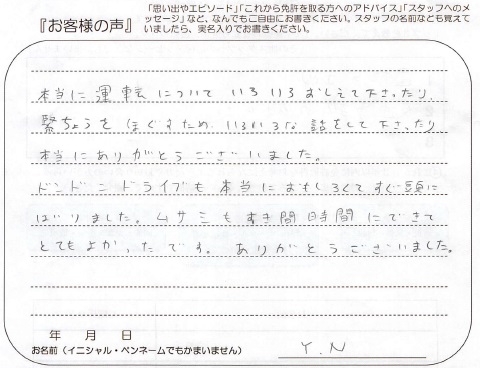 『お客様の声』
「思い出やエピソード」「これから免許を取る方へのアドバイス」「スタッフへのメ
ッセージ」など、なんでもご自由にお書きください。スタッフの名前なども覚えて
いましたら、実名入りでお書きください。
本当に運転についていろいろおしえて下さったり
緊ちょうをほぐすため、いろいろな話をして下さったり
本当にありがとうございました。
ドンドンドライブも本当におもしろくてすぐ頭に
はりました。ムサミもすき間時間にできて
とてもよかったです。ありがとうございました。
年 月 日
お名前(イニシャル・ペンネームでもかまいません)
Y.N